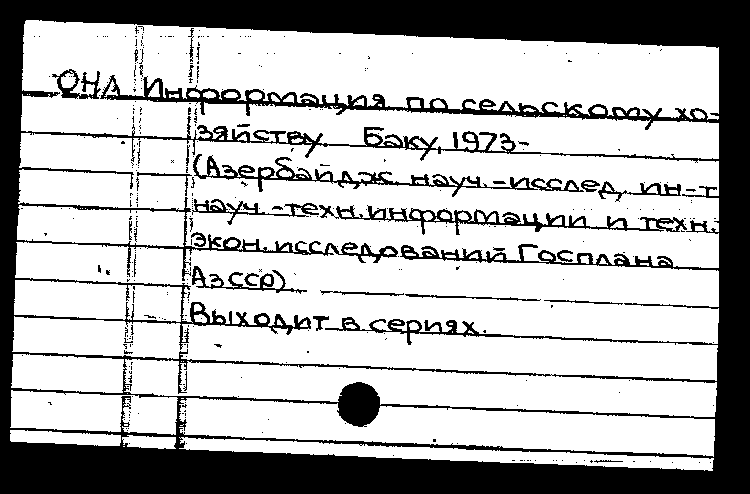 ОНЛ Информация по сельскому хо-
зяйству. Баку, 1973-
(Азербайдж. науч.-исслед. ин-т
науч.-техн. информации и техн.-
экон. исследований Госплана
АзССР)
Выходит в сериях.